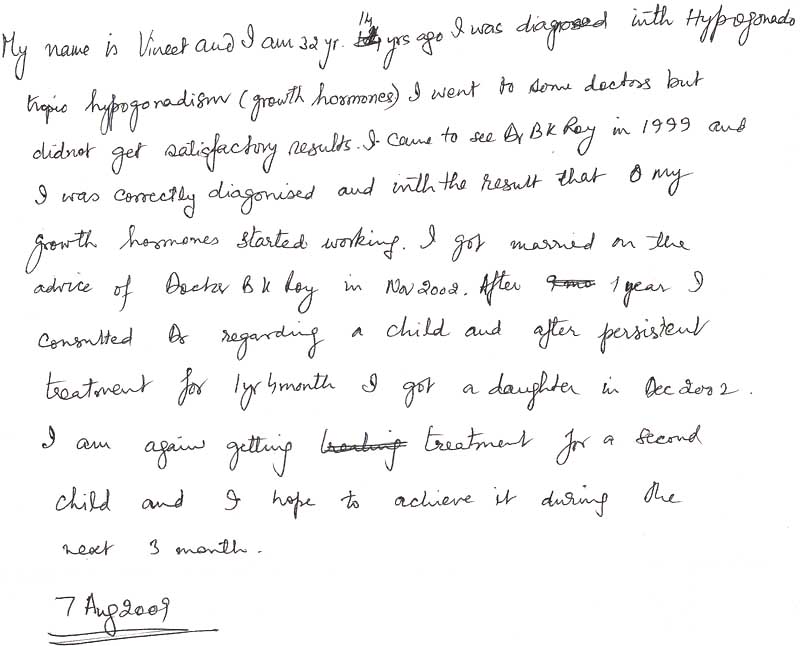 My name is Vineet and I am 32 yr. 14 yrs ago I was diagnosed with Hypogonado
tropic hypogonadism (growth hormones) I went to some doctors but
didnot get satisfactory results. I came to see Dr B K Roy in 1999 and
I was correctly diagonised and with the result that my
growth hormones started working. I got married on the
advice of Doctor B K Roy in Nov 2002. After 1 year I
consulted Dr regarding a child and after persistent
treatment for 1yr 4month I got a daughter in Dec 2002.
I am again getting treatment for a second
child and I hope to achieve it during the
next 3 month.
7 Aug 2009